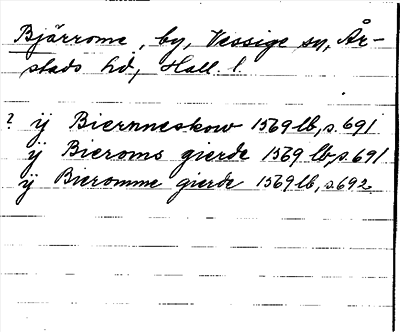 Bjärrome, by, Vessige sn, År-
stads hd, Hall. l.
? ij Biernneskow 1569 lb, s. 691
ij Bieroms gierde 1569 lb, s. 691
ij Bieromme gierde 1569 lb, s. 692